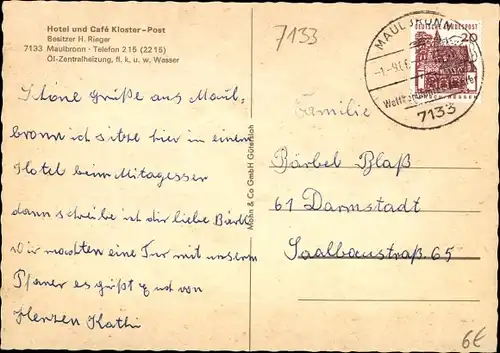 Hotel und Café Kloster-Post
Besitzer H. Rieger
7133 Maulbronn · Telefon 215 (2215)
Öl-Zentralheizung, fl. k. u. w. Wasser
7133
MAULBRONN
DEUTSCHE BUNDESPOST
20
7133
Schöne Grüße aus Maul-
bronn ich sitze hier in einem
Hotel beim Mitagesser
dann schreibe ist dir liebe Bärbl
Wir machten eine Tur mit unserm
Pfarrer es grüßt von
Herzen Kathi
Mohn & Co GmbH Gütersloh
Familie
Bärbel Blaß
61 Darmstadt
Saalbaustraß. 65
6€